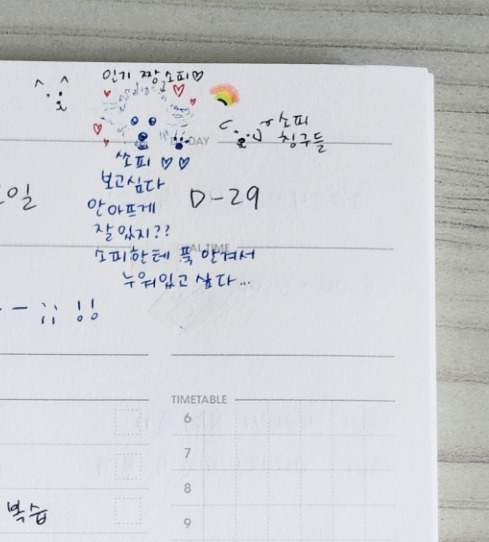 인기 짱 소피♡
소피 친구들
D-DAY
쏘피 ♡♡
보고싶다
D-29
안아프게
잘 있지??
TOTAL TIME
소피한테 푹 안겨서
누워있고 싶다...
요일
ㅡ ;; !!
TIMETABLE
6
7
8
9
복습